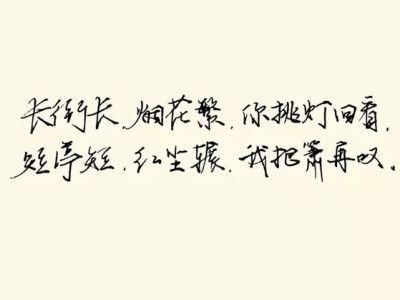 长街长,烟花繁,你挑灯回看,
短亭短,红尘辗,我把箫再叹。